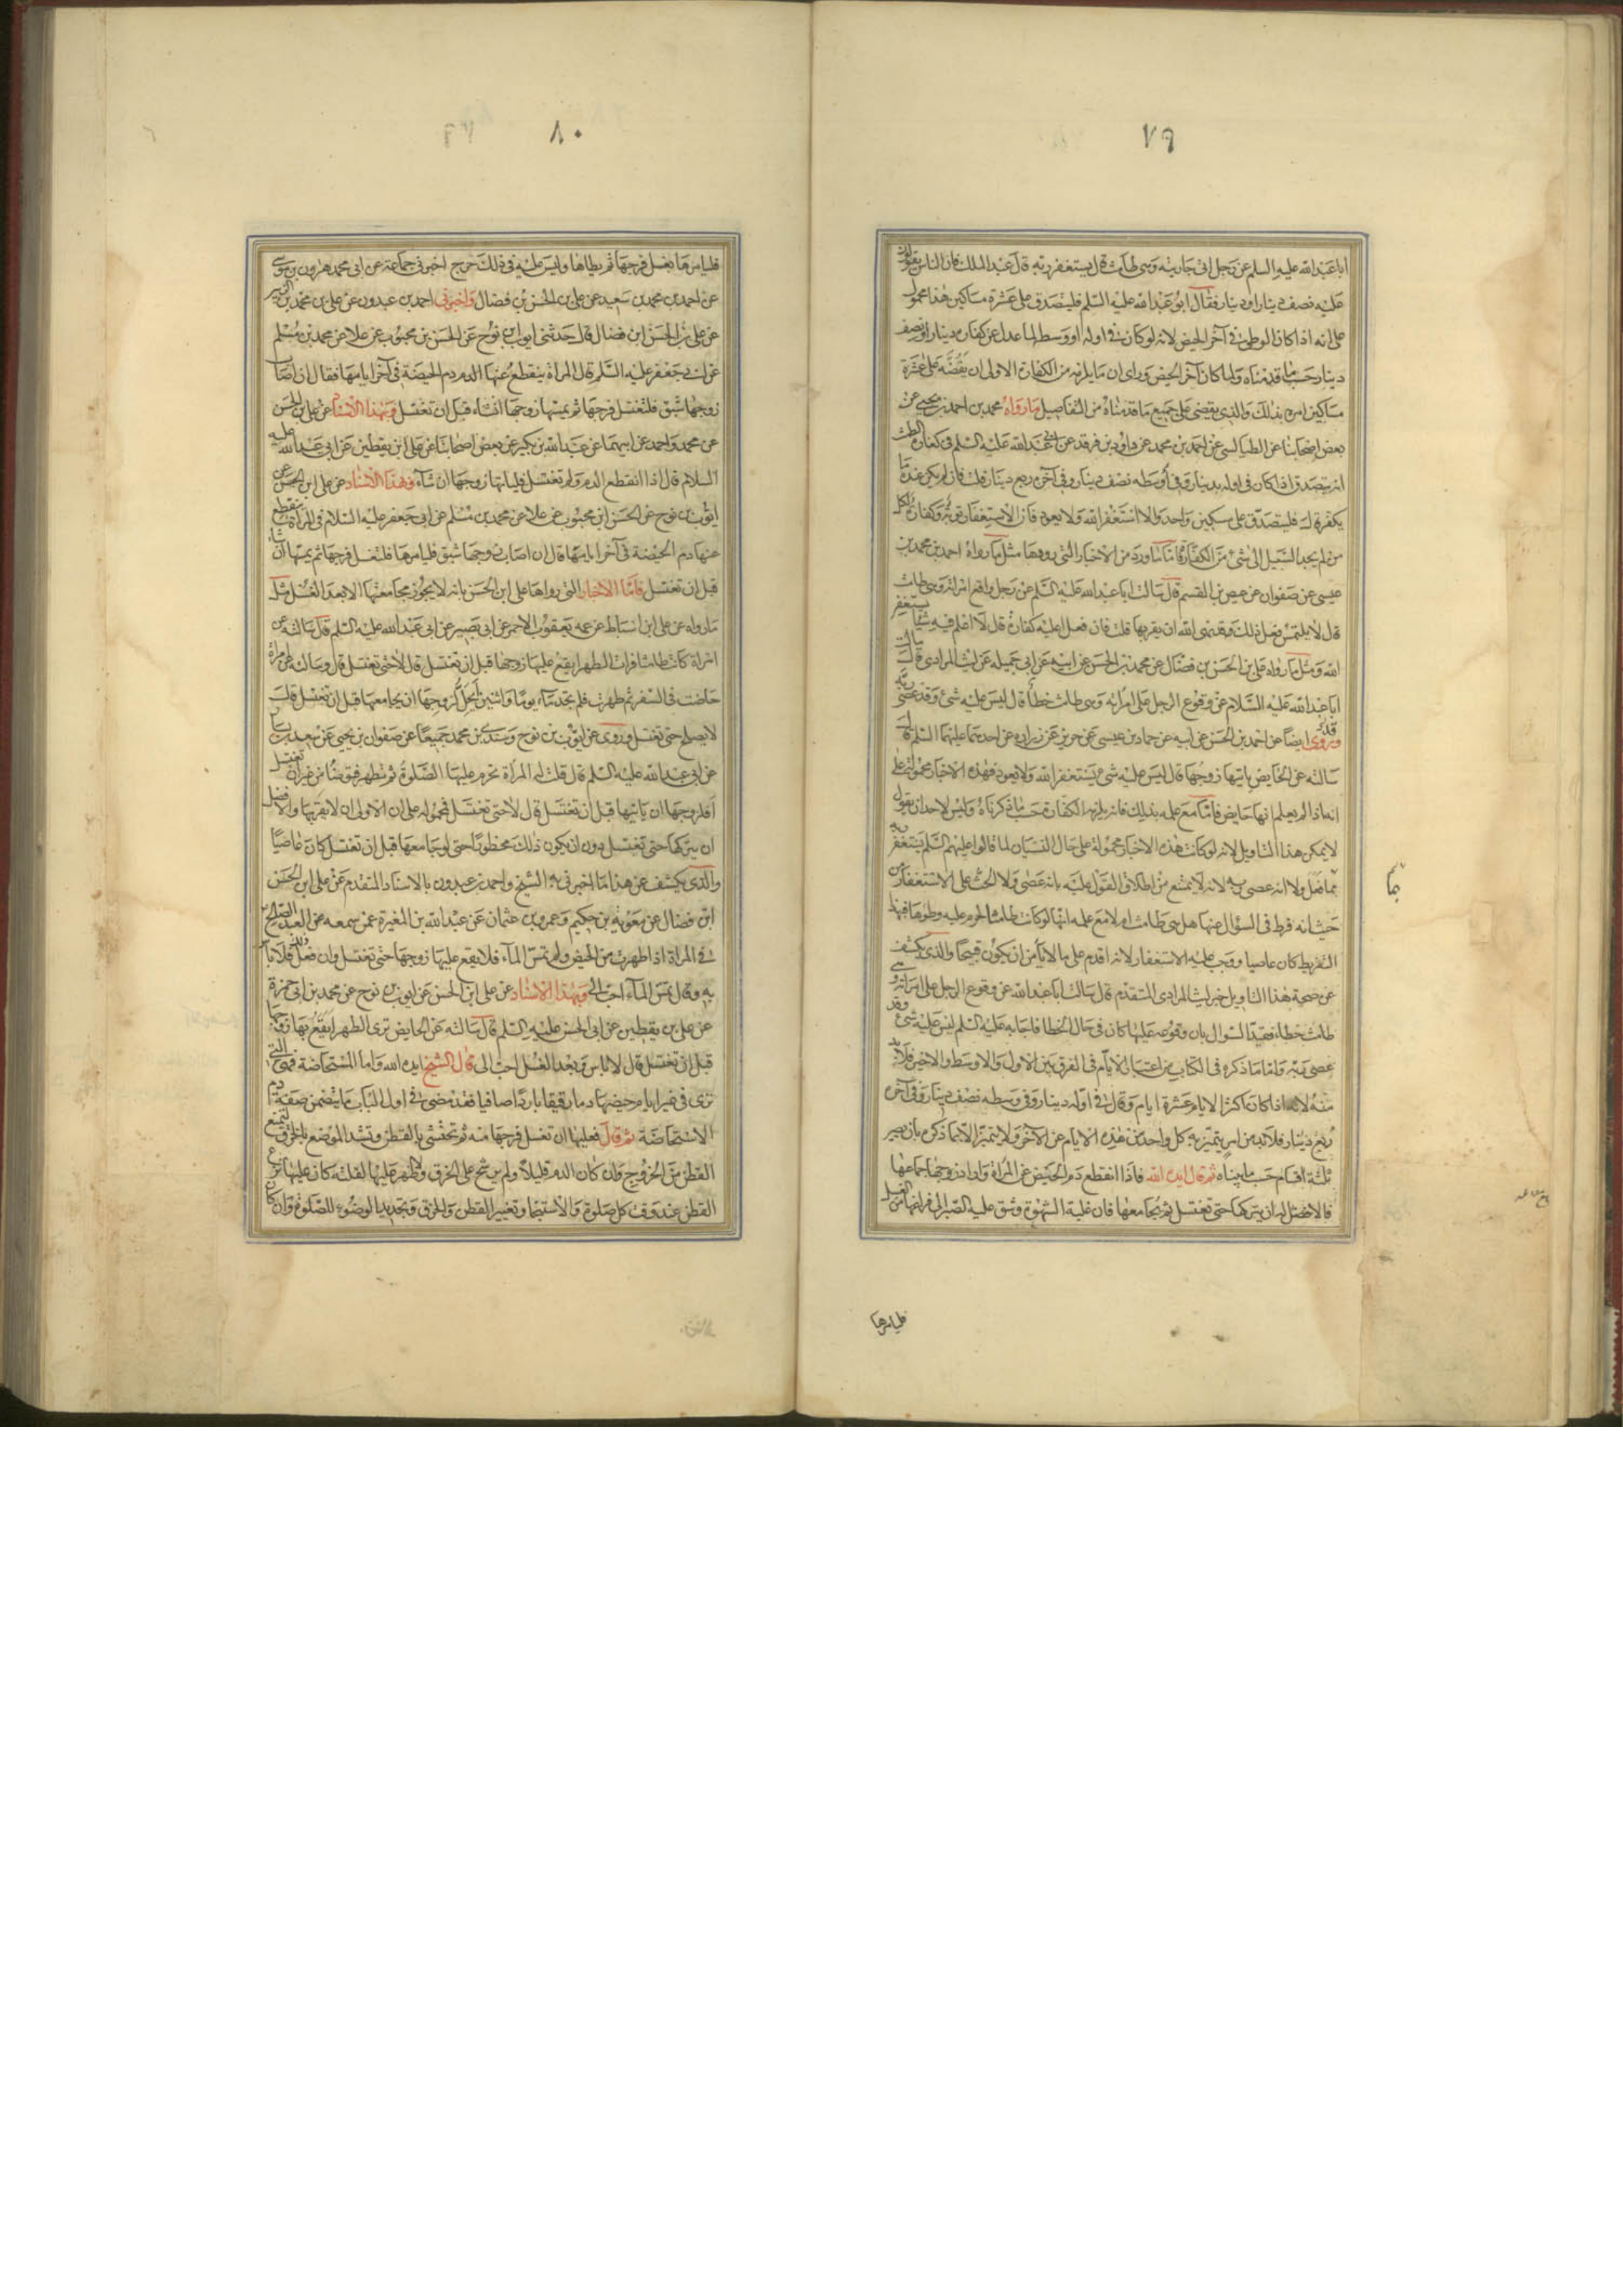 ٧٩
ابا عبد الله عليه السلم عن رجل اتى جاريته وهى طامث قال يستغفر ربه قال عبد الملك فان الناس يقولون
عليه نصف دينار او دينار فقال ابو عبد الله عليه السلم فليتصدق على عشرة مساكين هذا محمول
على انه اذا كان الوطى فى آخر الحيض لانه لو كان فى اوله او وسطه لما عدل عن كفارة دينار او نصف
دينار حسب ما قدمناه ولما كان آخر الحيض وراى ان ما يلزمه من الكفارة الاولى ان يفضه على عشرة
مساكين امره بذلك والذى يقضى على جميع ما قدمناه من التفاصيل ما رواه محمد بن احمد بن يحيى عن
بعض اصحابنا عن الطيالسى عن احمد بن محمد عن داود بن فرقد عن ابى عبد الله عليه السلم فى كفارة الطمث
انه يتصدق اذا كان فى اوله بدينار وفى اوسطه نصف دينار وفى آخره ربع دينار قلت فان لم يكن عنده ما
يكفر قال فليتصدق على مسكين واحد والا استغفر الله ولا يعود فان الاستغفار توبة وكفارة لكل
من لم يجد السبيل الى شئ من الكفارة فاما ما ورد من الاخبار التى رووها مثل ما رواه احمد بن محمد بن
عيسى عن صفوان عن عيص بن القسم قال سالت ابا عبد الله عليه السلم عن رجل واقع امراته وهى طامث
قال لا يلتمس فعل ذلك فقد نهى الله ان يقربها قلت فان فعل اعليه كفارة قال لا اعلم فيه شيئا يستغفر
الله ومثل ما رواه على بن الحسن بن فضال عن محمد بن الحسن عن ابيه عن ابى جميله عن ليث المرادى قال سالت
ابا عبد الله عليه السلام عن وقوع الرجل على امراته وهى طامث خطأ قال ليس عليه شئ وقد عصى ربه
وروى ايضا عن احمد بن الحسن عن ابيه عن حماد بن عيسى عن حريز عن زراره عن احدهما عليهما السلم قال
سالته عن الحايض ياتيها زوجها قال ليس عليه شئ يستغفر الله ولا يعود فهذه الاخبار محمولة على
انه اذا لم يعلم انها حايض فاما مع علمه بذلك فانه يلزمه الكفارة حسب ما ذكرناه وليس لاحد ان يقول
لا يمكن هذا التاويل لانه لو كانت هذه الاخبار محمولة على حال النسيان لما قالوا عليهم السلم يستغفر ربه
مما فعل ولا انه عصى ربه لانه لا يمتنع من اطلاق القول عليه بانه عصى ولا الحث على الاستغفار من
حيث انه فرط فى السؤال عنها هل هى طامث ام لا مع علمه انها لو كانت طامثا لحرم عليه وطؤها فبهذا
التفريط كان عاصيا ووجب عليه الاستغفار لانه اقدم على ما لا يأمن ان يكون قبيحا والذى يكشف
عن صحة هذا التاويل خبر ليث المرادى المتقدم قال سالت ابا عبد الله عن وقوع الرجل على امراته وهى
طامث خطاء فقيد السوال بان وقوعه عليها كان فى حال الخطا فاجابه عليه السلم ليس عليه شئ وقد
عصى ربه واما ما ذكره فى الكتاب من اعتبار الايام فى الفرق بين الاول والاوسط والاخير فلا بد
منه لانه اذا كان اكثر الايام عشرة ايام وقال فى اوله دينار وفى وسطه نصف دينار وفى آخره
ربع دينار فلا بد من امر يتميز به كل واحد من هذه الايام عن الآخر ولا يتميز الا بما ذكره بان يصير
ثلثة اقسام حسب ما بيناه ثم قال ايده الله فاذا انقطع دم الحيض عن المراة واراد زوجها جماعها
فالافضل له ان يتركها حتى تغتسل ثم يجامعها فان غلبته الشهوة وشق عليه الصبر الى فراغها من الغسل
فليامرها
٨٠
فليامرها بغسل فرجها ثم يطاها وليس عليه فى ذلك حرج اخبرنى جماعة عن ابى محمد هرون بن موسى
عن احمد بن محمد بن سعيد عن على بن الحسن بن فضال واخبرنى احمد بن عبدون عن على بن محمد بن الزبير
عن على بن الحسن ابن فضال قال حدثنى ايوب بن نوح عن الحسن بن محبوب عن علا عن محمد بن مسلم
عن ابى جعفر عليه السلم قال المراة ينقطع عنها الدم دم الحيضة فى آخر ايامها فقال ان اصاب
زوجها شبق فلتغسل فرجها ثم يمسها زوجها ان شاء قبل ان تغتسل وبهذا الاسناد عن على بن الحسن
عن محمد واحمد عن ابيهما عن عبد الله بن بكير عن بعض اصحابنا عن على ابن يقطين عن ابى عبد الله عليه
السلام قال اذا انقطع الدم ولم تغتسل فلياتها زوجها ان شآء وبهذا الاسناد عن على ابن الحسن عن
ايوب بن نوح عن الحسن ابن محبوب عن علا عن محمد بن مسلم عن ابى جعفر عليه السلام فى المراة ينقطع
عنها دم الحيضة فى آخر ايامها قال ان اصاب زوجها شبق فليامرها فلتغسل فرجها ثم يمسها ان شاء
قبل ان تغتسل فاما الاخبار التى رواها على ابن الحسن بانه لا يجوز مجامعتها الا بعد الغسل مثل
ما رواه عن على ابن اسباط عن عمه يعقوب الاحمر عن ابى بصير عن ابى عبد الله عليه السلم قال سالته عن
امراة كانت طامثا فرات الطهر ايقع عليها زوجها قبل ان تغتسل قال لا حتى تغتسل قال وسالته عن امراة
حاضت فى السفر ثم طهرت فلم تجد ماء يوما واثنين ايحل لزوجها ان يجامعها قبل ان تغتسل قال
لا يصلح حتى تغتسل وروى عن ايوب بن نوح وسندى بن محمد جميعا عن صفوان بن يحيى عن سعيد بن يسار
عن ابى عبد الله عليه السلم قال قلت له المراة تحرم عليها الصلوة ثم تطهر فتوضأ من غير ان تغتسل
افلزوجها ان ياتيها قبل ان تغتسل قال لا حتى تغتسل فمحموله على ان الاولى ان لا يقربها والافضل
ان يتركها حتى تغتسل دون ان يكون ذلك محظورا حتى لو جامعها قبل ان تغتسل كان عاصيا
والذى يكشف عن هذا ما اخبرنى به الشيخ واحمد بن عبدون بالاسناد المتقدم عن على ابن الحسن
ابن فضال عن معوية بن حكيم وعمرو بن عثمان عن عبد الله بن المغيرة عمن سمعه عن العبد الصالح
فى المراة اذا طهرت من الحيض ولم تمس المآء فلا يقع عليها زوجها حتى تغتسل وان فعل ذلك فلا باس
به وقال تمس المآء احب الى وبهذا الاسناد عن على ابن الحسن عن ايوب بن نوح عن محمد بن ابى حمزة
عن على بن يقطين عن ابى الحسن عليه السلم قال سالته عن الحايض ترى الطهر ايقع بها زوجها
قبل ان تغتسل قال لا باس وبعد الغسل احب الى قال الشيخ ايده الله واما المستحاضة فهى التى
ترى فى غير ايام حيضها دما رقيقا باردا صافيا فقد مضى فى اول الباب ما يتضمن صفة دم
الاستحاضة ثم قال فعليها ان تغسل فرجها منه ثم تحتشى بالقطن وتشد الموضع بالخرق ليمنع
القطن من الخروج وان كان الدم قليلا ولم يرشح على الخرق ولا ظهر عليها لقلته كان عليها نزع
القطن عند وقت كل صلوة والاستنجا وتغيير القطن والخرق وتجديد الوضوء للصلوة وان كان